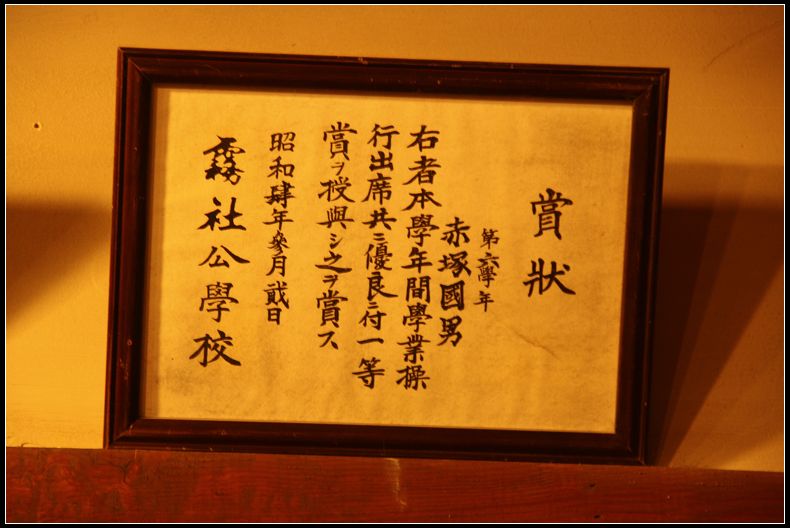 賞狀
第六學年
赤塚國男
右者本學年間學業操
行出席共ニ優良ニ付一等
賞ヲ授與シ之ヲ賞ス
昭和肆年參月貳日
霧社公學校